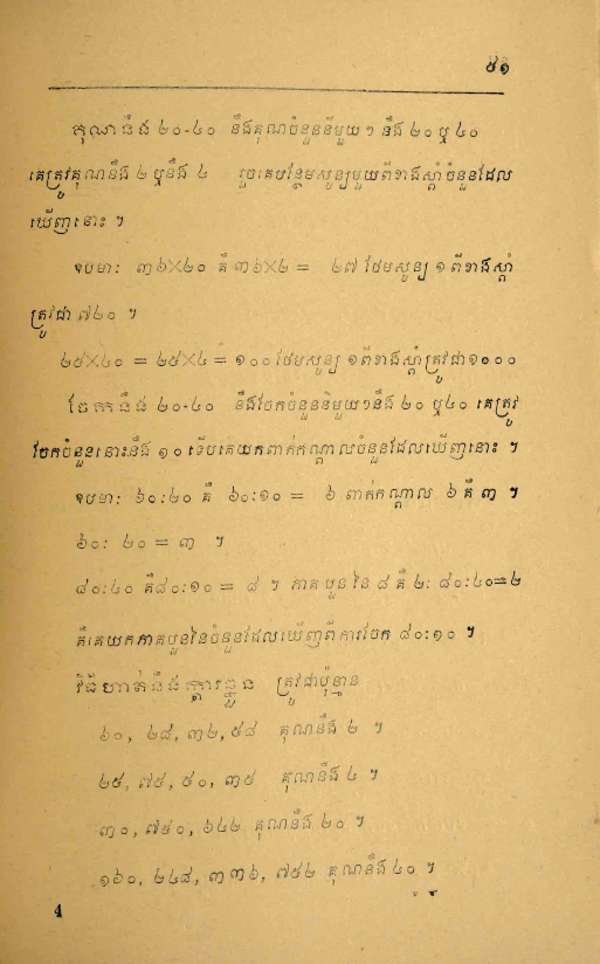 ៥១
គុណនឹង ២០-៤០ នឹងគុណចំនួននីមួយៗ នឹង ២០ ឬ ៤០
គេត្រូវគុណនឹង ២ ឬនឹង ៤ រួចគេបន្ថែមសូន្យមួយពីខាងស្តាំចំនួនដែល
ឃើញនោះ ។
ឧបមាៈ ៣៦×២០ គឺ ៣៦×២ = ៧២ ថែមសូន្យ ១ ពីខាងស្តាំ
ត្រូវជា ៧២០ ។
២៥×៤០ = ២៥×៤ = ១០០ ថែមសូន្យ ១ពីខាងស្តាំត្រូវជា១០០០
ចែកនឹង ២០-៤០ នឹងចែកចំនួននិមួយៗនឹង ២០ ឬ៤០ គេត្រូវ
ចែកចំនួននោះនឹង ១០ ទើបគេយកពាក់កណ្តាលចំនួនដែលឃើញនោះ ។
ឧបមាៈ ៦០:២០ គឺ ៦០:១០ = ៦ ពាក់កណ្តាល ៦ គឺ ៣ ។
៦០: ២០ = ៣ ។
៨០:៤០ គឺ៨០:១០ = ៨ ។ ភាគបួននៃ ៨ គឺ ២: ៨០:៤០=២
គឺគេយកភាគបួននៃចំនួនដែលឃើញពីការចែក ៨០:១០ ។
វិធីហាត់នឹងក្តារឆ្នួន ត្រូវជាប៉ុន្មាន
៦០, ២៨, ៣២, ៥៨ គុណនឹង ២ ។
២៥, ៧៥, ៥០, ៣៥ គុណនឹង ៤ ។
៣០, ៧៥០, ៦៤២ គុណនឹង ២០ ។
១៦០, ២៤៨, ៣៣៦, ៧៥២ គុណនឹង ៤០ ។
4